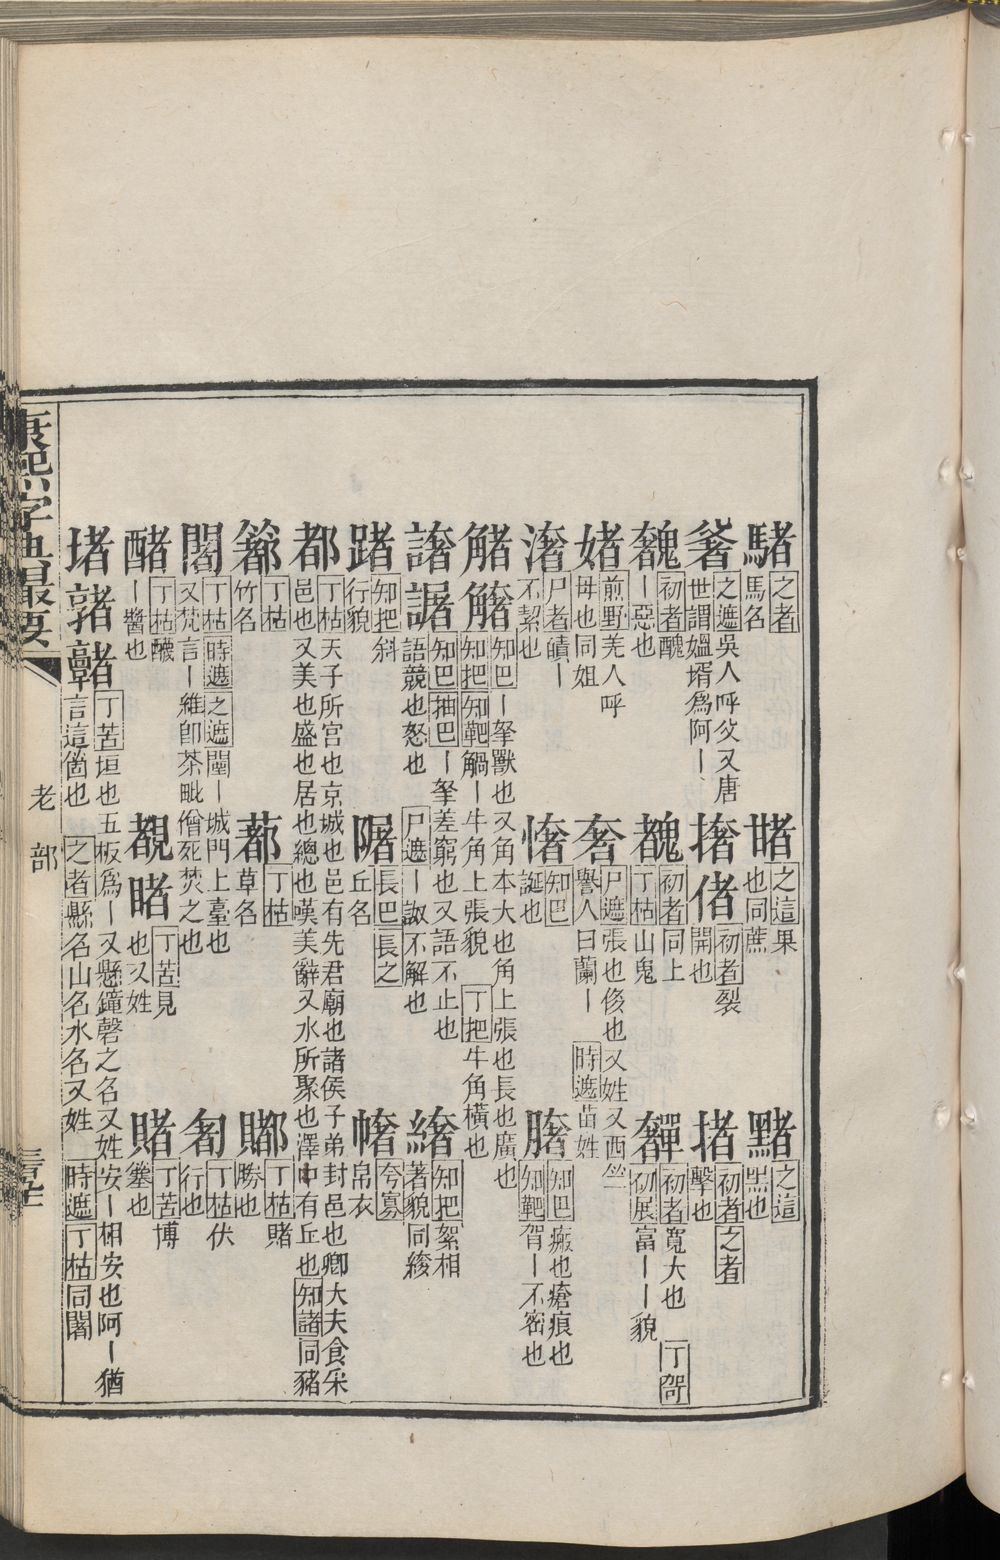 䮐 之者馬名 𧵳 之這果也同蔗 𪑡 之這𤐫也
爹 之遮吳人呼父又唐世謂媼壻爲阿丨 撦偖 初者裂開也 撦 初者之者擊也
䰩 初者醜丨惡也 䰩 初者同上丁枯山鬼 奲 初者寬大也丁㗇初展富丨丨貌
媎 煎野羌人呼母也同姐 奢 尸遮張也侈也又姓又西竺譽人曰蘭丨 時遮苗姓
㵔 尸者皟丨不絜也 㦋 知巴誕也 膪 知巴瘢也瘡痕也知靶䏧丨不密也
觰䚩 知巴丨拏獸也又角本大也角上張也長也廣也知把知靶觸丨牛角上張貌 丁把牛角橫也
譇䛽 知巴抽巴丨拏羞窮也又語不止也語競也怒也 尸遮丨詉不解也 緒 知把絮相著貌同綾
踷 知把斜行貌 𨻼 長巴長之丘名 幨 夸寡帛衣
都 丁枯天子所宮也京城也邑有先君廟也諸侯子弟封邑也卿大夫食采邑也又美也盛也居也總也嘆美辭又水所聚也澤中有丘也知諸同豬
䈞 丁枯竹名 蒩 丁枯草名 䣝 丁枯賭勝也
闍 丁枯時遮之遮闉丨城門上臺也又梵言丨維卽茶毗僧死焚之也 㔘 丁枯伏行也
醏 丁枯醲丨醬也 覩睹 丁苦見也又姓 賭 丁苦博簺也
堵𩫨𩫬 丁苦垣也五板爲丨又懸鐘磬之名又姓安丨相安也阿丨猶言這箇也 之者縣名山名水名又姓 時遮丁枯同闍
康熙字典最要
老部